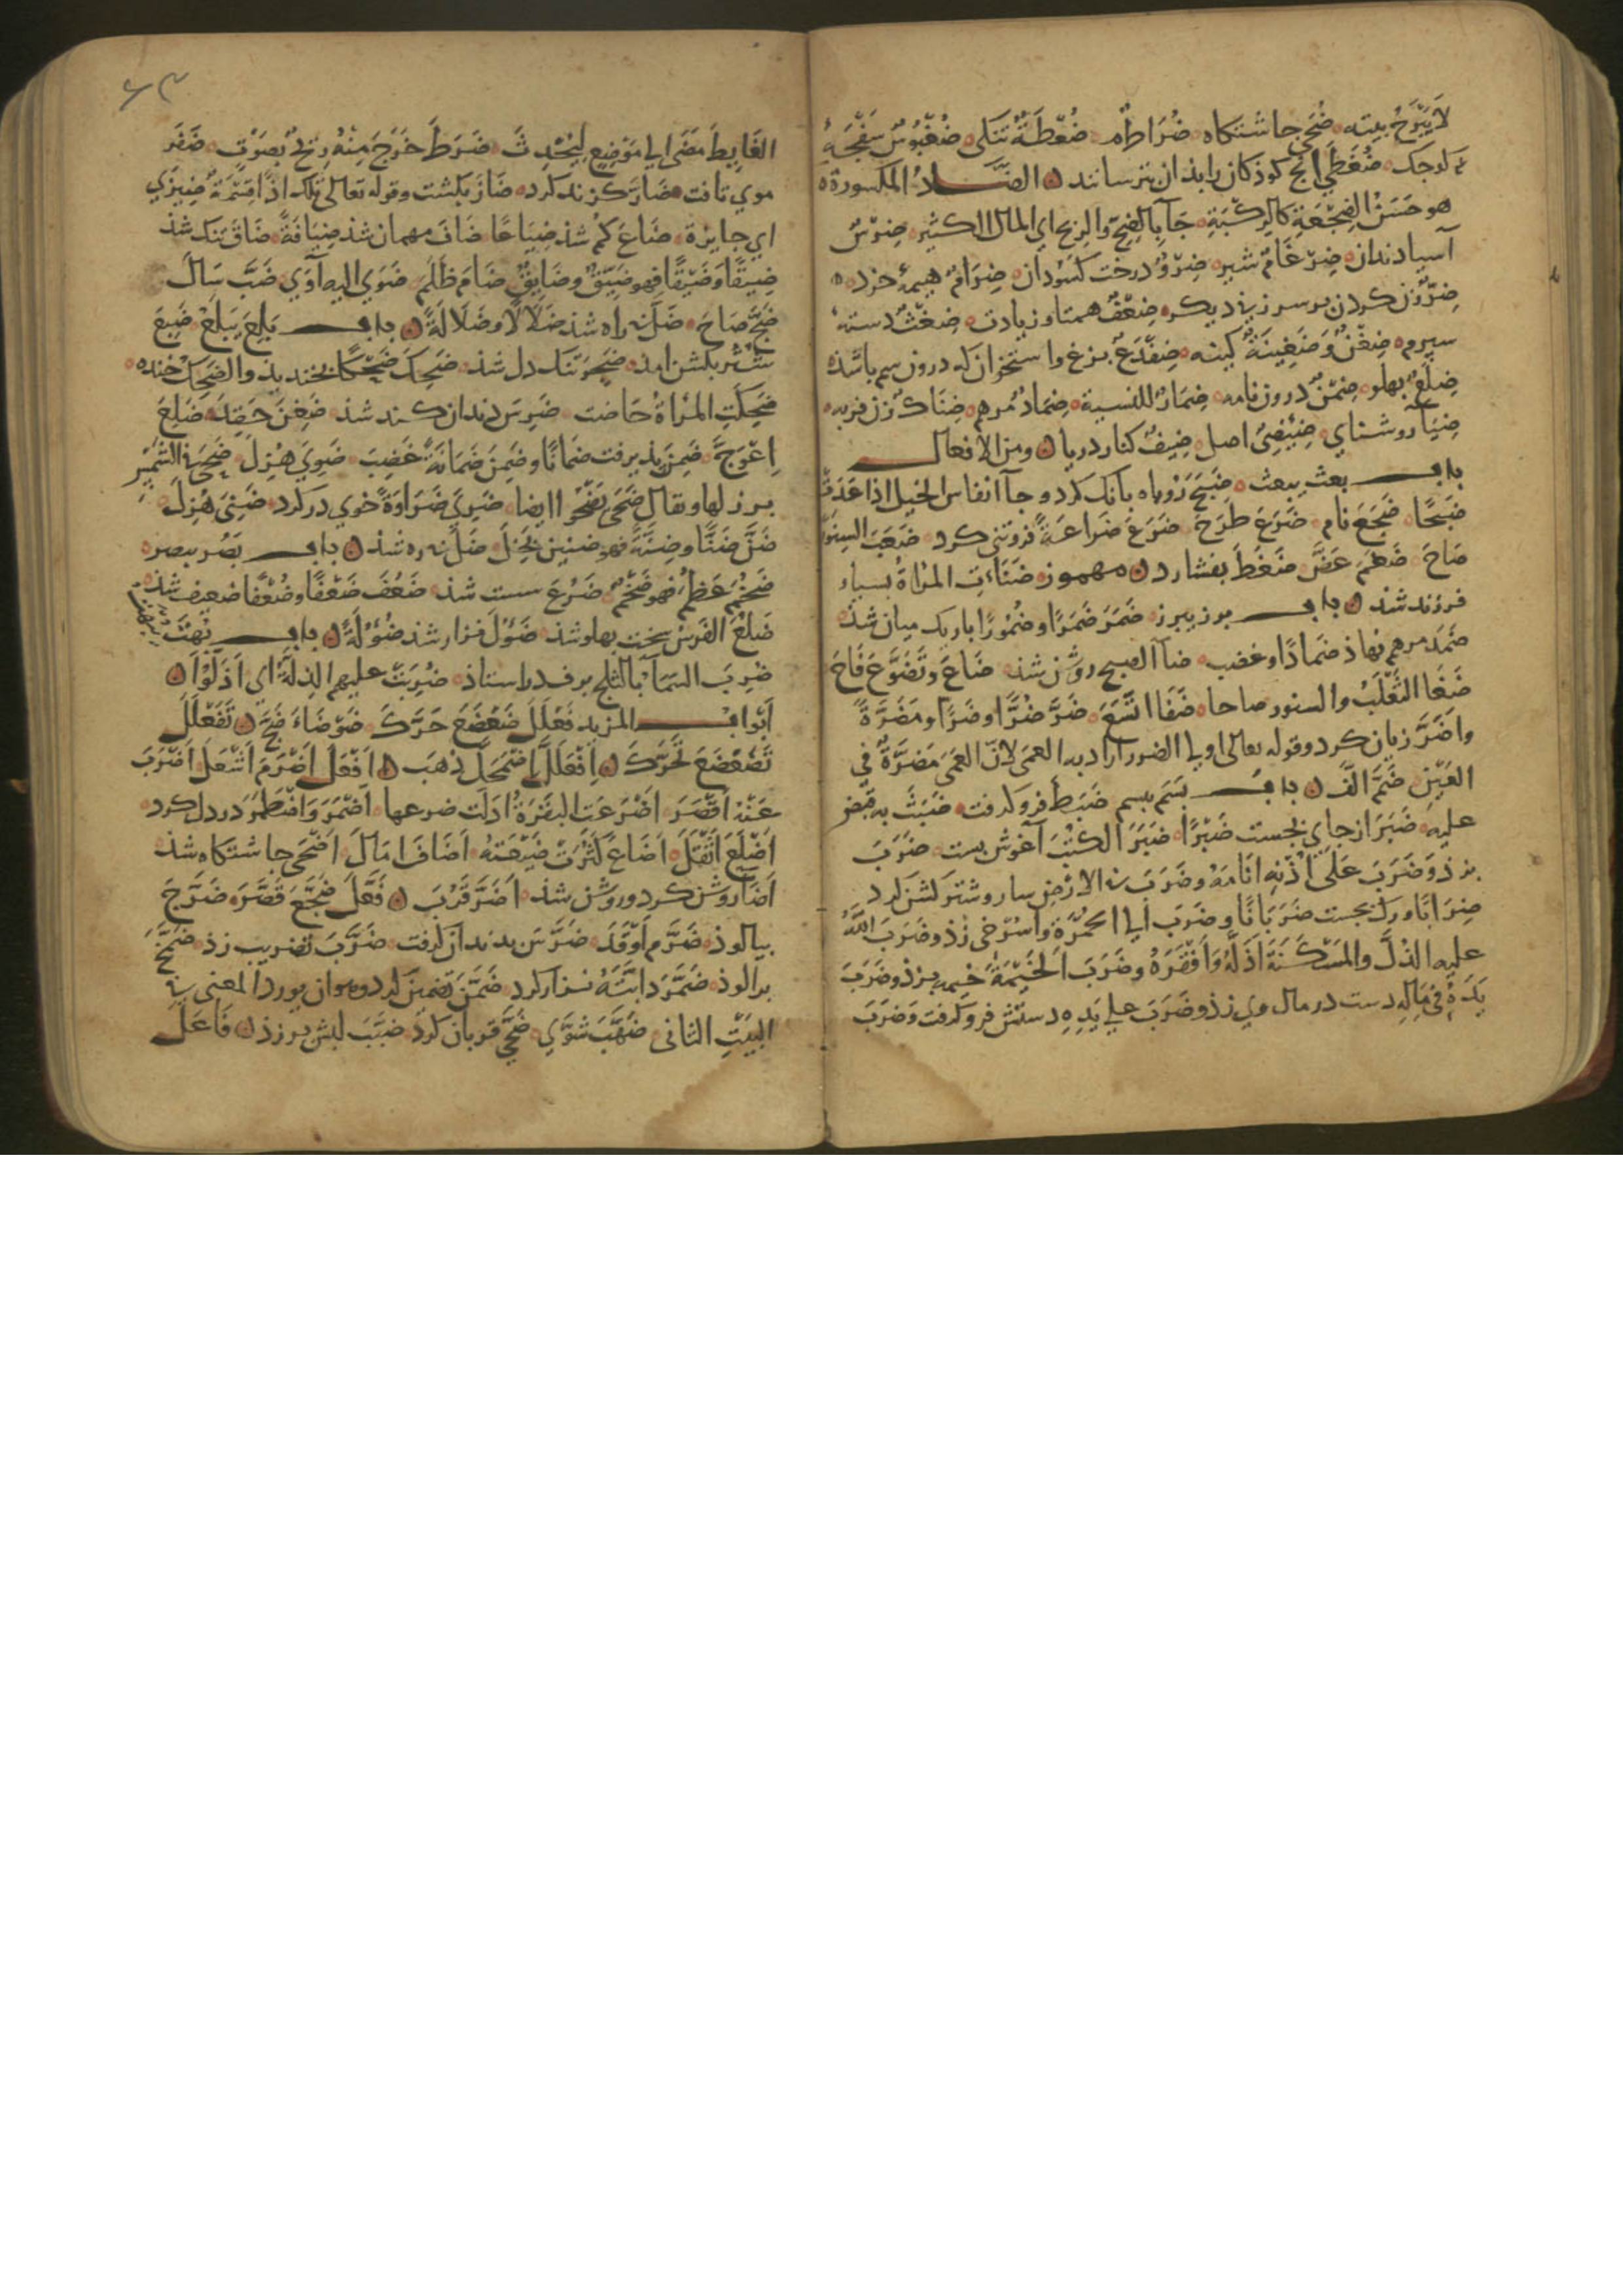 لَا يَبْرَحُ بيته ضُحًى چاشتكاه ضُرَاطٌ ضُغْطَةٌ تنكى ضُغْبُوسٌ
ضُغْطَى انج كوذكان را بذان بترسانند الضَّادُ المكسورة
هو حَسَنُ الضِجْعَةِ كَالرِكْبَةِ جَآ بِالضِحِّ وَالرِيحِ اي المال الكثير ضِرْسٌ
آسيا دندان ضِرْغَامٌ شير ضِرْوٌ درخت ضِرَامٌ هيمۀ خرد
ضِرٌّ زن كردن بر سر زنى ديكر ضِعْفٌ همتا و زيادت ضِغْثٌ دستۀ
سپرم ضِغْنٌ وَضَغِينَةٌ كينه ضِفْدَعٌ بزغ و استخوان كه درون سم باشذ
ضِلَعٌ پهلو ضِمْنٌ درون نامه ضِمَارٌ للنسية ضِمَادٌ مرهم ضِنَاكٌ زن فربه
ضِيَآ روشناي ضِئْضِئٌ اصل ضِيفٌ كنار دريا ومن الافعال
باب بعث يبعث ضَبَحَ روباه بانك كرد و جآ انفاس الخيل اذا عَدَتْ
ضَبْحًا ضَجَعَ نام ضَرَحَ طَرَحَ ضَرَعَ ضَرَاعَةً فروتنى كرد ضَغَبَ السِنَّوْرُ
صَاحَ ضَغَمَ عَضَّ ضَغَطَ بفشارد مهموز ضَنَأَتِ المرْاةُ بسيار
فرزند شد باب برز يبرز ضَمَرَ ضَمْرًا وضُمُورًا باريك ميان شد
ضَمَدَ مرهم نهاذ ضَمَادًا و غضب ضآ الصبح روشن شذ ضَاعَ وَتَضَوَّعَ فَاحَ
ضَغَا الثَّعْلَبُ والسنور صاحا ضَفَا اتَّسَعَ ضَرَّ ضُرًّا وضَرًّا ومَضَرَّةً
واضَرَّ زيان كرد وقوله تعالى اولي الضرر اراد به العمى لِاَنّ العَمَى مَضَرَّةٌ في
العَيْنِ ضَمَّ الَّفَ باب بَسَمَ يبسم ضَبَطَ فرو كرفت ضَبَثَ به قبض
عليه ضَبَرَ از جاي بجست ضَبْرًا ضَبَرَ الكُتُبَ آغوش بست ضَرَبَ
بزذ وَضَرَبَ عَلَى اُذُنِهِ انَامَهُ وضَرَبَ فى الارض سار و شتر كشن كرد
ضِرَابًا و رك بجست ضَرَبَانًا وضَرَبَ الى الحُمْرَةِ و اسرخى زذ وضَرَبَ اللّٰهُ
عليه الذُلَّ والمَسْكَنَةَ اَذَلَّهُ وَاَفْقَرَهُ وضَرَبَ الخَيْمَةَ خيمه بزذ وضَرَبَ
يَدَهُ فِي مَالِهِ دست در مال وي زذ وضَرَبَ على يَدِهِ دستش فرو كرفت وَضَرَبَ
٦٣
الغَايِطَ مَضَى الى مَوْضِعٍ لِيُحْدِثَ ضَرَطَ خَرَجَ مِنْهُ رِيحٌ بِصَوْتٍ ضَفَرَ
موي تافت ضَارَ كزند كرد ضَازَ بكشت وقوله تعالى تلك اذًا قِسْمَةٌ ضِيزَي
اي جايرة ضَاعَ كم شذ ضِيَاعًا ضَافَ مهمان شذ ضِيَافَةً ضَاقَ تنك شذ
ضِيقًا وَضَيْقًا فهو ضَيِّقٌ وضَايِقٌ ضَامَ ظَلَمَ ضَوَي اليه آوَي ضَبَّ سَالَ
ضَجَّ صَاحَ ضَلَّ نه راه شذ ضَلَالًا وضَلَالَةً باب بَلِعَ يَبْلَعُ ضَبِعَ
شتر بكشن آمذ ضَجِرَ تنك دل شذ ضَحِكَ ضَحِكًا بخنديذ والضَحِكُ خنده
ضَحِكَتِ المرْاةُ حَاضت ضَرِسَ دندان كند شذ ضَغِنَ حَقِدَ ضَلِعَ
اِعْوَجَّ ضَمِنَ پذيرفت ضَمَانًا وضَمِنَ ضَمَانَةً غَضِبَ ضَوِيَ هُزِلَ ضَحِيَ للشَمْسِ
برز لها ويقال ضَحَى يَضْحُو ايضا ضَرِيَ ضَرَاوَةً خوي در كرد ضَنِيَ هُزِلَ
ضَنَّ ضَنًّا وضِنَّةً فهو ضنين بَخِلَ ضَلَّ نه ره شذ باب بَصُر يبصر
ضَخُمَ عَظُمَ فهو ضَخْمٌ ضَرُعَ سست شذ ضَعُفَ ضَعْفًا وضُعْفًا ضعيف شذ
ضَلُعَ الفَرَسُ سخت پهلو شذ ضَؤُلَ نزار شذ ضُؤُلَةً باب بُهِتَ
ضُرِبَ السَّمآ بالثلج برف دراستاذ ضُرِبَتْ عليهم الذِلَّةُ اي اُذِلُّوا
اَبْواب المزيد فَعْلَلَ ضَعْضَعَ حَرَّكَ ضَوْضَاءَ ضَجَّ تَفَعْلَلَ
تَضَعْضَعَ تَحَرَّكَ اِفْعَلَلَّ اِضْمَحَلَّ ذهَب اَفْعَلَ اَضْرَمَ اَشْعَلَ اَضْرَبَ
عَنْهُ اَقْصَرَ اَضْرَعَتِ البَقَرَةُ اَدَلَت ضرعها اَضْمَرَ وَاضْطَمَرَ در دل كرد
اَضْلَعَ اَثْقَلَ اَضَاعَ كَثُرَتْ ضَيْعَتُهُ اَضَافَ اَمَالَ اَضْحَى چاشتكاه شذ
اَضَآ روشن كرد وروشن شذ اَضَرَّ قَرُبَ فَعَّلَ ضَجَّعَ قَصَّرَ ضَرَّجَ
بيالوذ ضَرَّمَ اَوْقَدَ ضَرَّسَ بدندان كرفت ضَرَّبَ تضريب زذ ضَمَّخَ
برالوذ ضَمَّرَ دابَّتَهُ نزار كرد ضَمَّنَ تضمين كرد وهو ان يورد المعنى فى
البَيْتِ الثانى ضَهَّبَ شَوَّي ضَحَّى قربان كرد ضَبَّبَ لبش برزذ فَاعَلَ